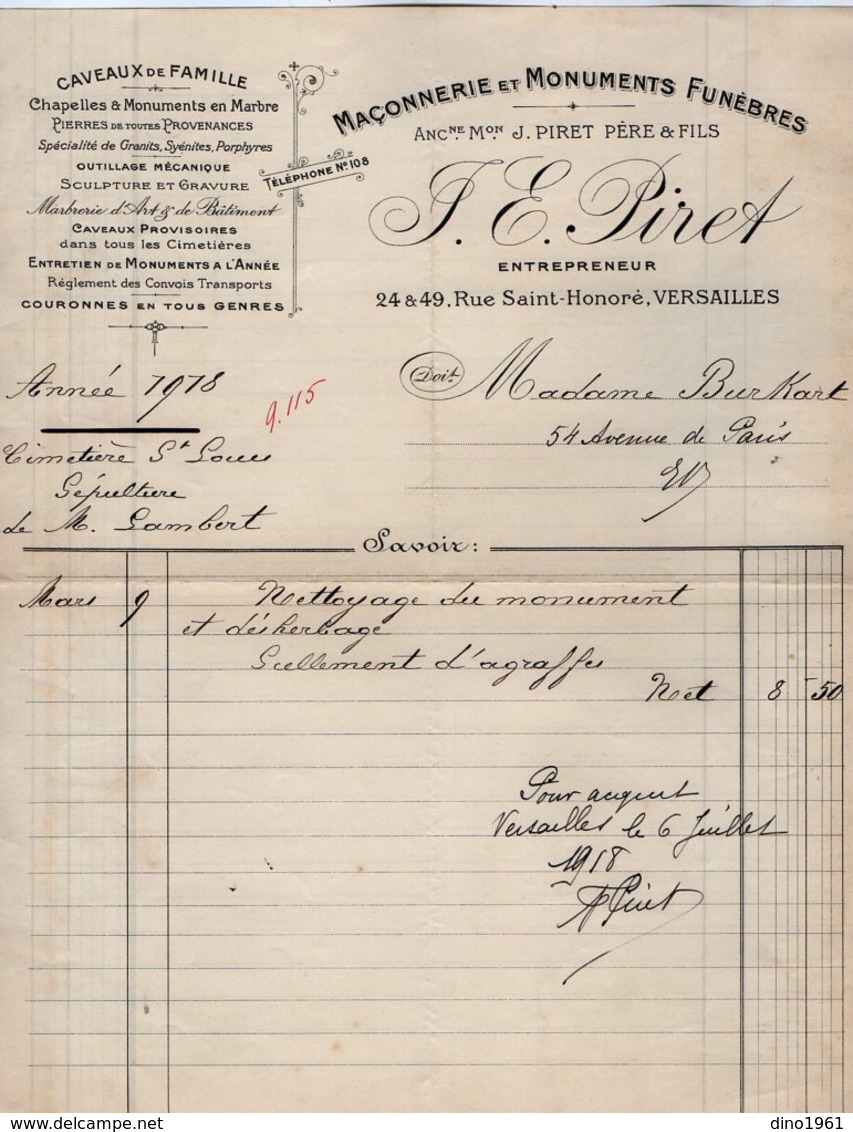 CAVEAUX DE FAMILLE
Chapelles & Monuments en Marbre
PIERRES DE TOUTES PROVENANCES
Spécialité de Granits, Syénites, Porphyres
OUTILLAGE MÉCANIQUE
SCULPTURE ET GRAVURE
Marbrerie d'Art & de Bâtiment
CAVEAUX PROVISOIRES
dans tous les Cimetières
ENTRETIEN DE MONUMENTS A L'ANNÉE
Réglement des Convois Transports
COURONNES EN TOUS GENRES
TÉLÉPHONE No. 108
MAÇONNERIE ET MONUMENTS FUNÈBRES
ANCNE. MON. J. PIRET PÈRE & FILS
J. E. Piret
ENTREPRENEUR
24 & 49, Rue Saint-Honoré, VERSAILLES
Année 1918
9.115
Doit
Madame Burkart
54 Avenue de Paris
E.V
Cimetière St Louis
Sépulture
de M. Lambert
Savoir:
Mars 9 Nettoyage du monument
et désherbage
Scellement d'agraffes
Net 8 50
Pour acquit
Versailles le 6 Juillet
1918
Piret
dino1961